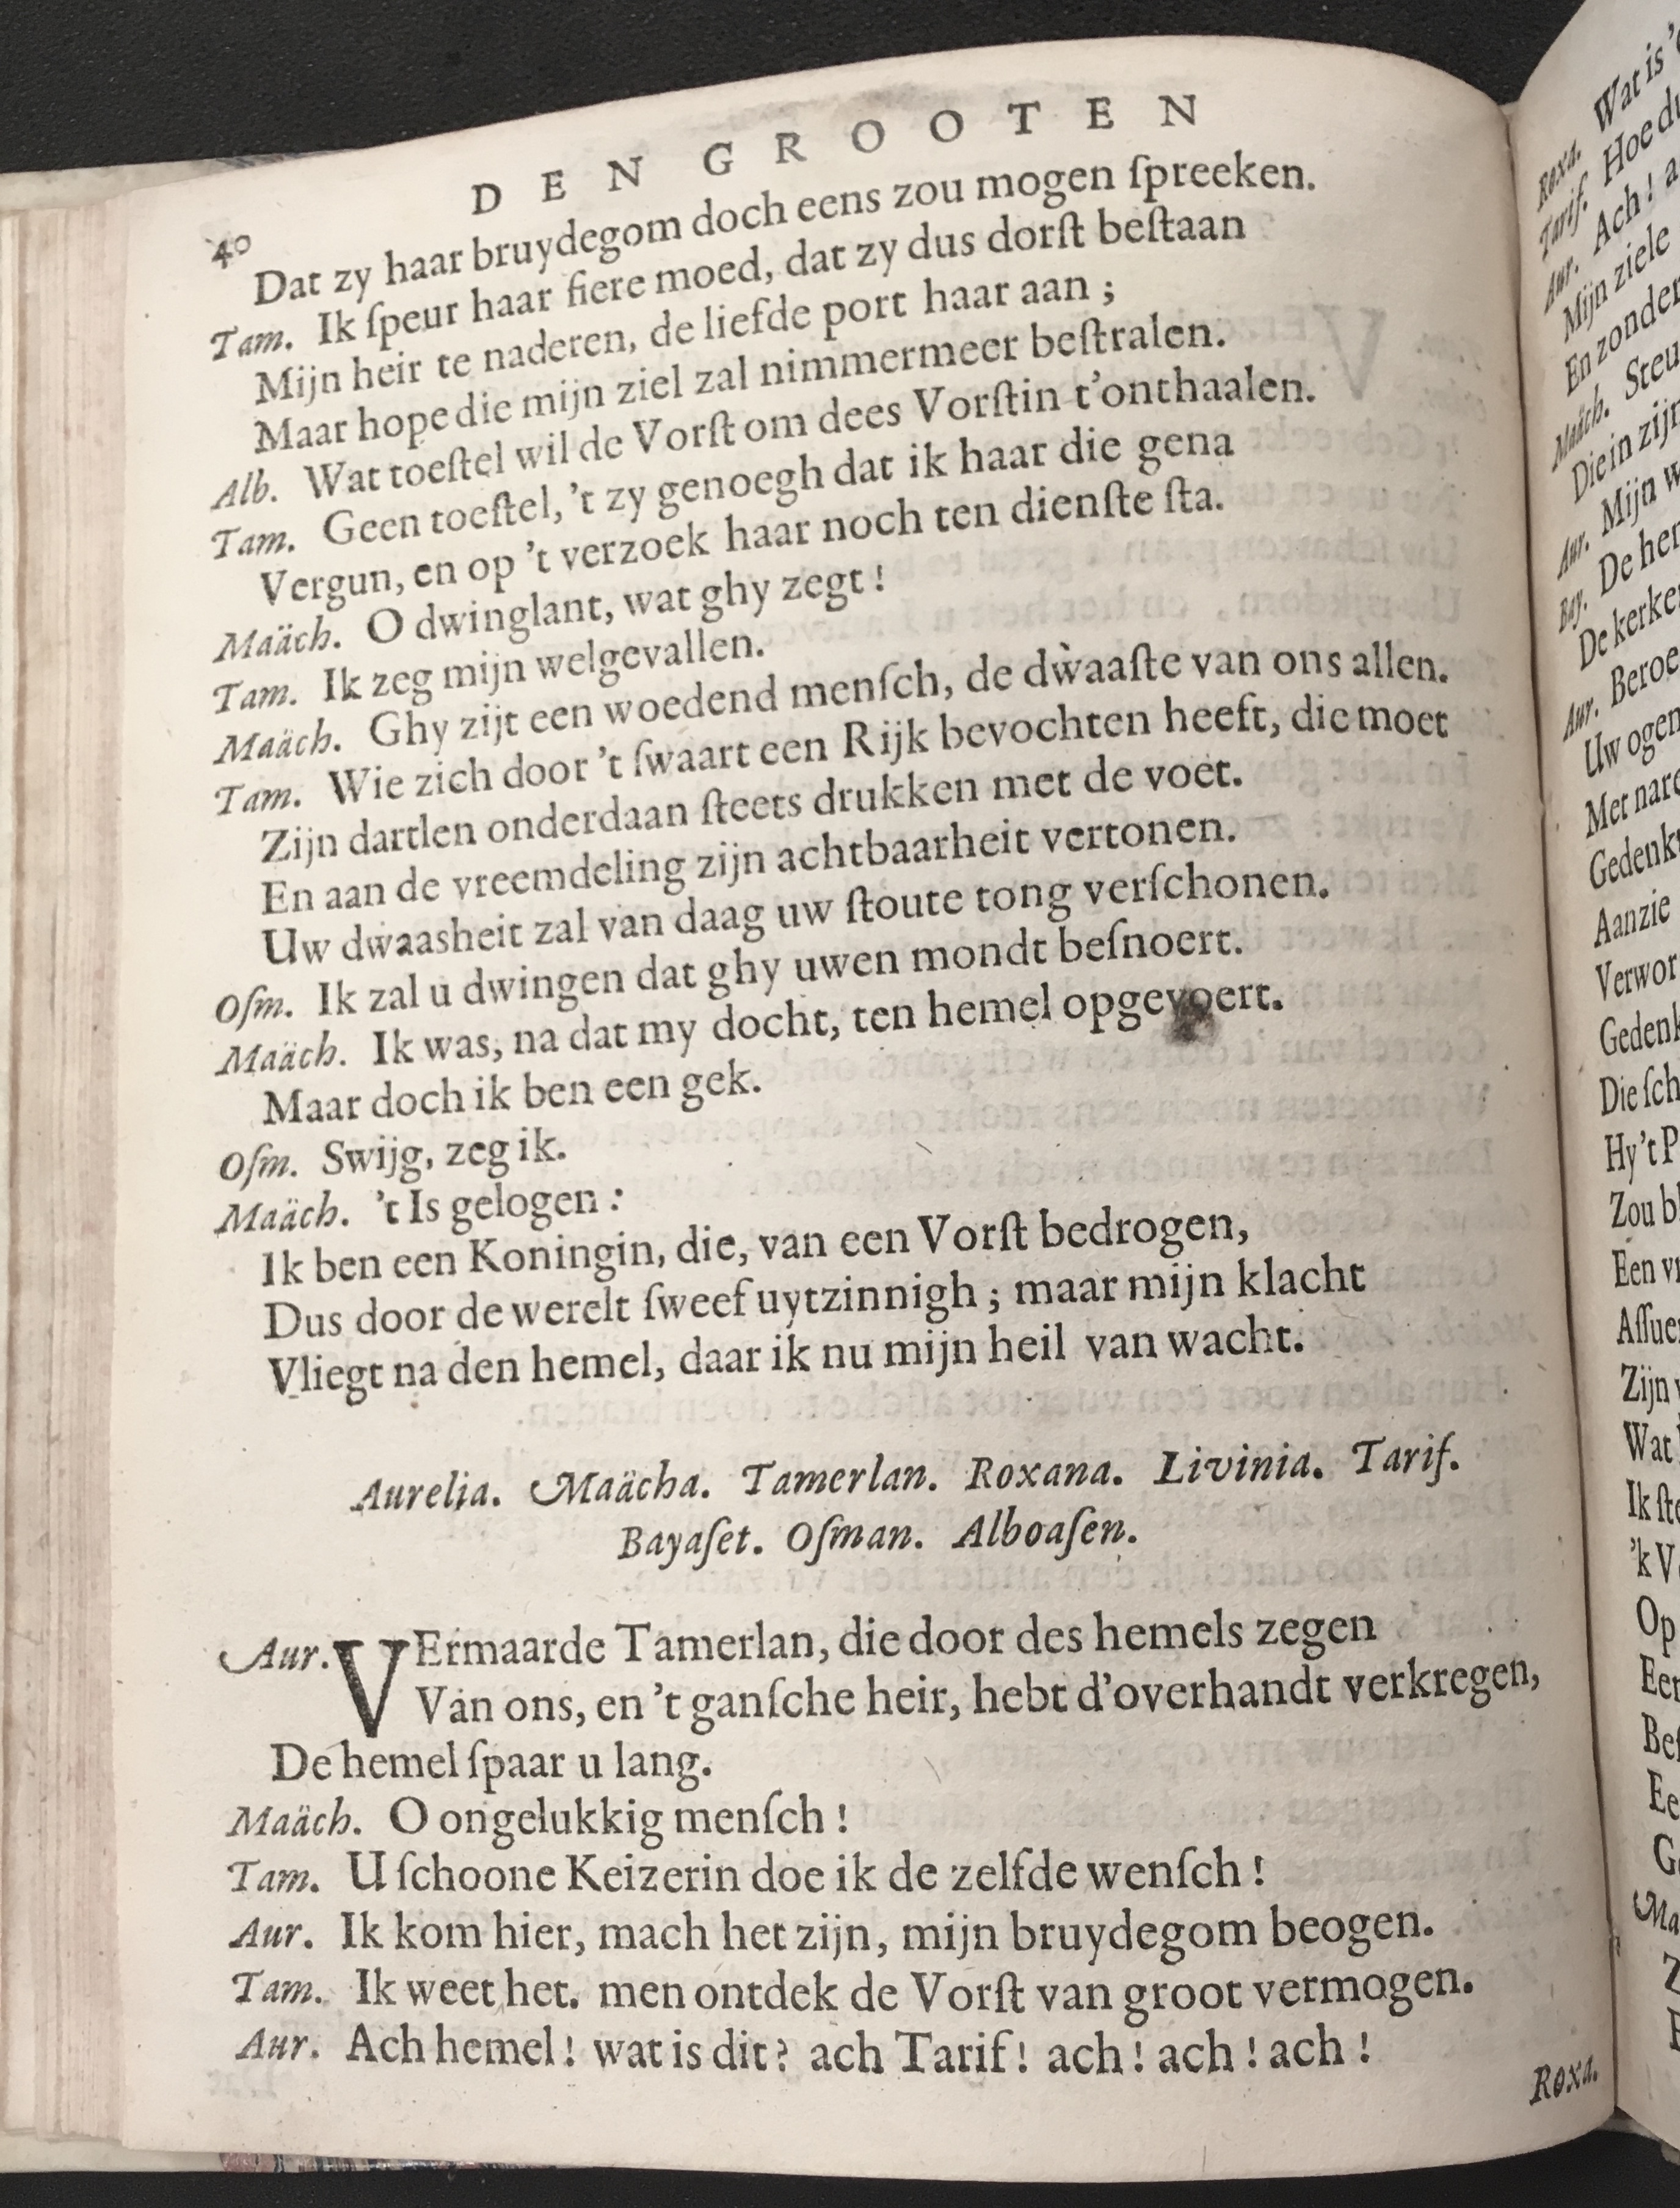 DEN GROOTEN
40
Dat zy haar bruydegom doch eens zou mogen ſpreeken.
Tam. Ik ſpeur haar fiere moed, dat zy dus dorſt beſtaan
Mijn heir te naderen, de liefde port haar aan ;
Maar hope die mijn ziel zal nimmermeer beſtralen.
Alb. Wat toeſtel wil de Vorſt om dees Vorſtin t'onthaalen.
Tam. Geen toeſtel, 't zy genoegh dat ik haar die gena
Vergun, en op 't verzoek haar noch ten dienſte ſta.
Maäch. O dwinglant, wat ghy zegt !
Tam. Ik zeg mijn welgevallen.
Maäch. Ghy zijt een woedend menſch, de dwaaſte van ons allen.
Tam. Wie zich door 't ſwaart een Rijk bevochten heeft, die moet
Zijn dartlen onderdaan ſteets drukken met de voet.
En aan de vreemdeling zijn achtbaarheit vertonen.
Uw dwaasheit zal van daag uw ſtoute tong verſchonen.
Oſm. Ik zal u dwingen dat ghy uwen mondt beſnoert.
Maäch. Ik was, na dat my docht, ten hemel opgevoert.
Maar doch ik ben een gek.
Oſm. Swijg, zeg ik.
Maäch. 't Is gelogen :
Ik ben een Koningin, die, van een Vorſt bedrogen,
Dus door de werelt ſweef uytzinnigh ; maar mijn klacht
Vliegt na den hemel, daar ik nu mijn heil van wacht.
Aurelia. Maächa. Tamerlan. Roxana. Livinia. Tarif.
Bayaſet. Oſman. Alboaſen.
Aur. VErmaarde Tamerlan, die door des hemels zegen
Van ons, en 't ganſche heir, hebt d'overhandt verkregen,
De hemel ſpaar u lang.
Maäch. O ongelukkig menſch !
Tam. U ſchoone Keizerin doe ik de zelfde wenſch !
Aur. Ik kom hier, mach het zijn, mijn bruydegom beogen.
Tam. Ik weet het. men ontdek de Vorſt van groot vermogen.
Aur. Ach hemel ! wat is dit ? ach Tarif ! ach ! ach ! ach !
Roxa.
Roxa. Wat is
Tarif. Hoe
Aur. Ach !
Mijn ziele
En zonder
Maäch.
Die in zijn
Aur. Mijn
Bay. De
De
Aur.
Uw ogen
Met
Aanzie
Die
Hy 't
Zou
Een
Zijn
Wat
Ik
'k
Op